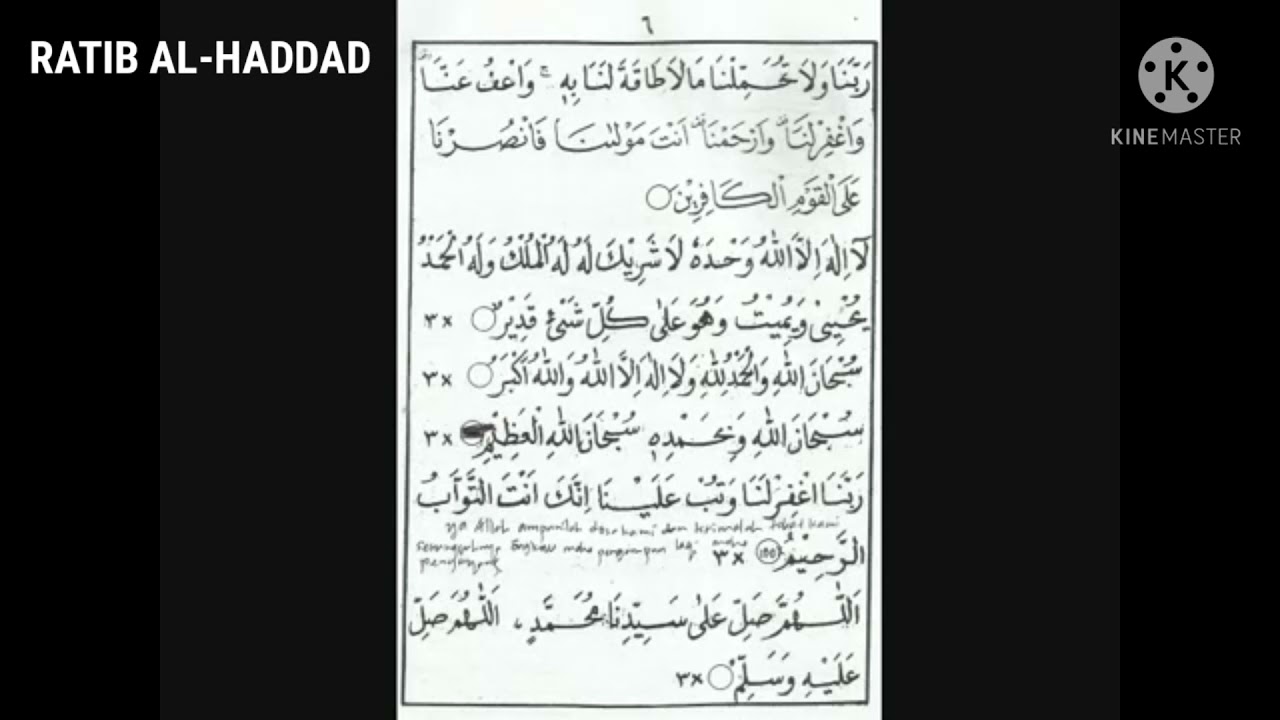 RATIB AL-HADDAD
K
KINEMASTER
٦
رَبَّنَا وَلَا تُحَمِّلْنَا مَا لَا طَاقَةَ لَنَا بِهٖ ۚ وَاعْفُ عَنَّا
وَاغْفِرْ لَنَا وَارْحَمْنَا اَنْتَ مَوْلٰىنَا فَانْصُرْنَا
عَلَى الْقَوْمِ الْكَافِرِيْنَ
لَآ اِلٰهَ اِلَّا اللهُ وَحْدَهٗ لَا شَرِيْكَ لَهُ لَهُ الْمُلْكُ وَلَهُ الْحَمْدُ
يُحْيِيْ وَيُمِيْتُ وَهُوَ عَلٰى كُلِّ شَىْءٍ قَدِيْرٌ ٣×
سُبْحَانَ اللهِ وَالْحَمْدُ لِلّٰهِ وَلَا اِلٰهَ اِلَّا اللهُ وَاللهُ اَكْبَرُ ٣×
سُبْحَانَ اللهِ وَبِحَمْدِهٖ سُبْحَانَ اللهِ الْعَظِيْمِ ٣×
رَبَّنَا اغْفِرْ لَنَا وَتُبْ عَلَيْنَا اِنَّكَ اَنْتَ التَّوَّابُ
ya Allah ampunilah dosa kami dan terimalah tobat kami
sesungguhnya Engkau maha pengampun lagi maha
penyayang
الرَّحِيْمُ ٣×
اَللّٰهُمَّ صَلِّ عَلٰى سَيِّدِنَا مُحَمَّدٍ ، اَللّٰهُمَّ صَلِّ
عَلَيْهِ وَسَلِّمْ ٣×